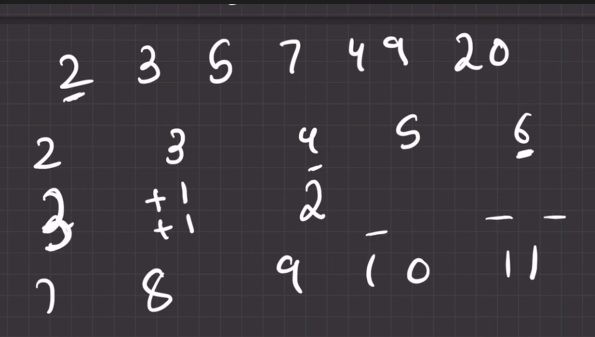 2 3 5 7 49 20
2 3 4 5 6
3 +1 2
+1
7 8 9 10 11